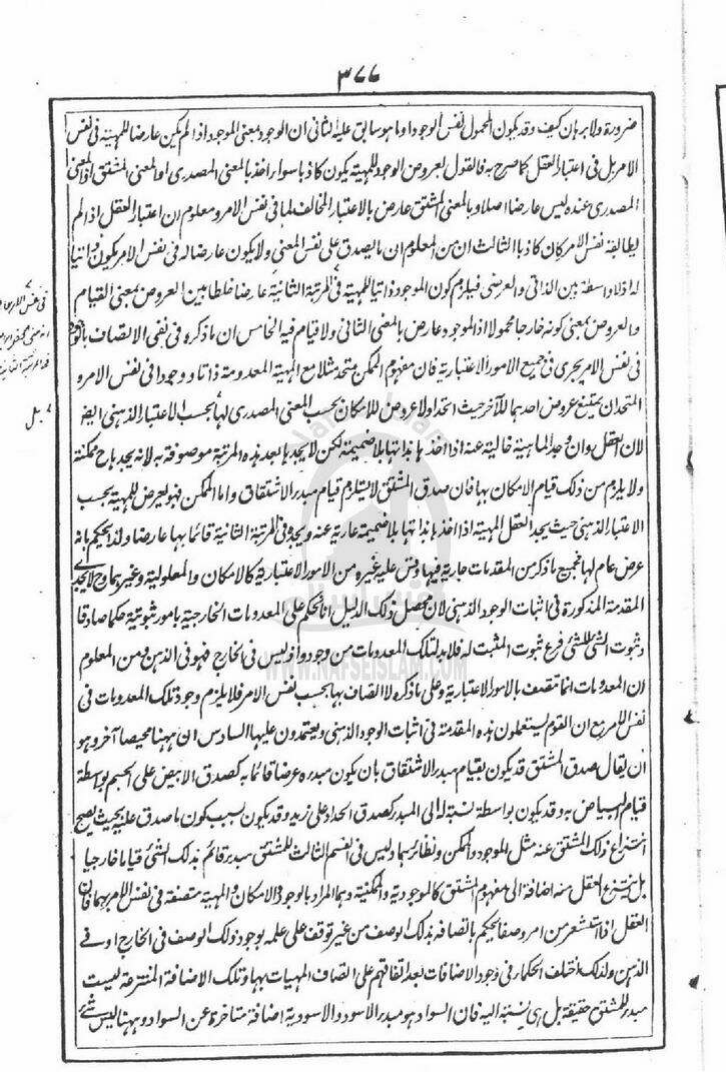 ٣٧٧
ضرورة ولا برهان كيف وقد يكون المحمول نفس الوجود او ما هو سابق عليه الثانى ان الوجود بمعنى الموجود اذا لم يكن عارضا للمهية فى نفس
الامر بل فى اعتبار العقل كما صرح به فالقول بعروض الوجود للمهية يكون كاذبا سواء اخذ بالمعنى المصدرى او المعنى المشتق اذ المعنى
المصدرى عنده ليس عارضا اصلا وبالمعنى المشتق عارض بالاعتبار المخالف لما فى نفس الامر ومعلوم ان اعتبار العقل اذا لم
يطابقه نفس الامر كان كاذبا الثالث ان من المعلوم ان ما يصدق على نفس المعنى ولا يكون عارضا له فى نفس الامر يكون ذاتيا
له اذ لا واسطة بين الذاتى والعرضى فيلزم كون الموجود ذاتيا للمهية فى المرتبة الثانية عارضا خلطا بين العروض بمعنى القيام
والعروض بمعنى كونه خارجا محمولا اذ الموجود عارض بالمعنى الثانى ولا قيام فيه الخامس ان ما ذكره فى نفى الاتصاف بالوجود
فى نفس الامر يجرى فى جميع الامور الاعتبارية فان مفهوم الممكن متحد مثلا مع المهية المعدومة ذاتا ووجودا فى نفس الامر و
المتحدان يمتنع عروض احدهما للآخر حيث اتحدا ولا عروض للامكان بحسب المعنى المصدرى لها بحسب الاعتبار الذهنى ايضا
لان العقل وان وجد الماهية خالية عنه اذا اخذها بذاتها بلا ضميمة لكن لا يجدها بعد هذه المرتبة موصوفة به لانه يجدها ح ممكنة
ولا يلزم من ذلك قيام الامكان بها فان صدق المشتق لا يستلزم قيام مبدء الاشتقاق واما الممكن فهو يعرض للمهية بحسب
الاعتبار الذهنى حيث يجد العقل المهية اذا اخذها بذاتها بلا ضميمة عارية عنه ويجده فى المرتبة الثانية قائما بها عارضا ولذا يحكم بانه
عرض عام لها فجميع ما ذكر من المقدمات جارية فيها وقس عليه غيره من الامور الاعتبارية كالامكان والمعلولية وغيرهما وح لا يجدى
المقدمة المذكورة فى اثبات الوجود الذهنى لان محصل ذلك الدليل انا نحكم على المعدومات الخارجية بامور ثبوتية حكما صادقا
وثبوت الشئ للشئ فرع ثبوت المثبت له فلا بد لتلك المعدومات من وجود واذ ليس فى الخارج فهو فى الذهن ومن المعلوم
ان المعدومات انما تتصف بالامور الاعتبارية وعلى ما ذكره لا اتصاف بها بحسب نفس الامر فلا يلزم وجود تلك المعدومات فى
نفس الامر مع ان القوم يستعملون هذه المقدمة فى اثبات الوجود الذهنى ويعتمدون عليها السادس ان ههنا محيصا آخر وهو
ان يقال صدق المشتق قد يكون بقيام مبدء الاشتقاق بان يكون مبدءه عرضا قائما به كصدق الابيض على الجسم بواسطة
قيام البياض به وقد يكون بواسطة نسبة له الى المبدء كصدق الحداد على زيد وقد يكون بسبب كون ما صدق عليه بحيث يصح
انتزاع ذلك المشتق عنه مثل الموجود والممكن ونظائرهما وليس فى القسم الثالث للمشتق مبدء قائم بذلك الشئ قياما خارجيا
بل ينتزع العقل منه اضافة الى مفهوم المشتق كالموجودية والممكنية وهما المراد بالوجود والامكان والمهية متصفة فى نفس الامر بهما فان
العقل اذا استشعر من امر وصفا يحكم باتصافه بذلك الوصف من غير توقف على علمه بوجود ذلك الوصف فى الخارج او فى
الذهن ولذلك اختلف الحكماء فى وجود الاضافات بعد اتفاقهم على اتصاف المهيات بها وتلك الاضافة المنتزعة ليست
مبدء للمشتق حقيقة بل هى نسبة اليه فان السواد هو مبدء الاسود والاسودية اضافة متاخرة عن السواد وههنا ليس شئ
WWW.NAFSEISLAM.COM